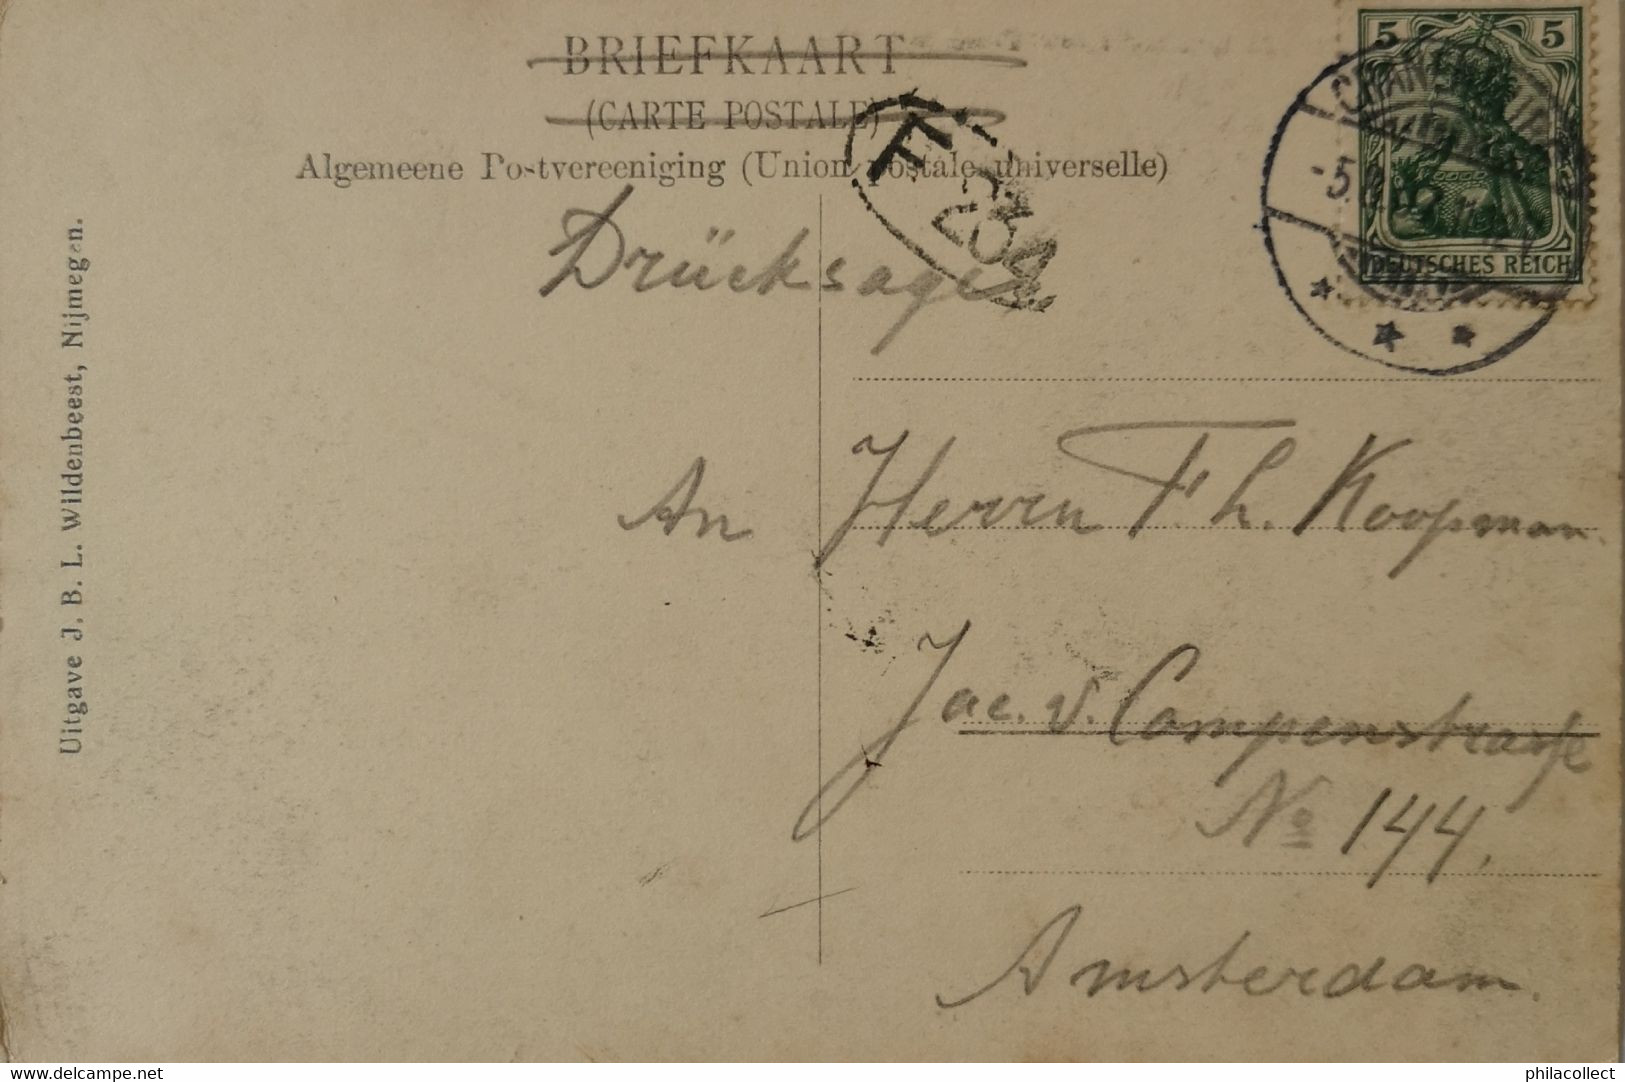 BRIEFKAART
(CARTE POSTALE)
Algemeene Postvereeniging (Union postale universelle)
5 5
DEUTSCHES REICH
F. 234
Drücksage
An Herrn Th. Koopman.
Jac. v. Campenstrasse
No 144.
Amsterdam.
Uitgave J. B. L. Wildenbeest, Nijmegen.
delcampe.net
philacollect